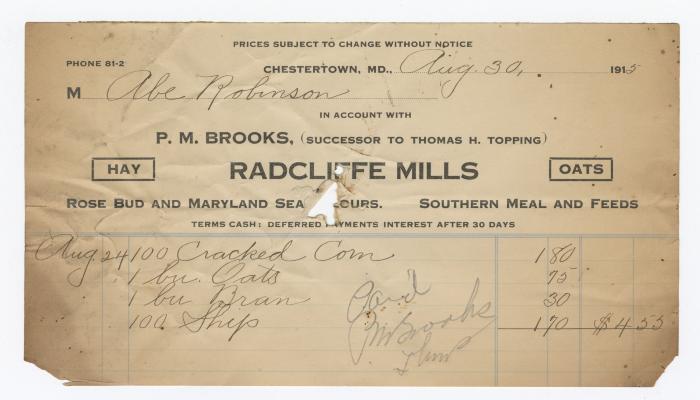 PRICES SUBJECT TO CHANGE WITHOUT NOTICE
PHONE 81-2
CHESTERTOWN, MD., Aug. 30, 1915
M Abe Robinson
IN ACCOUNT WITH
P. M. BROOKS, (SUCCESSOR TO THOMAS H. TOPPING)
HAY RADCLIFFE MILLS OATS
ROSE BUD AND MARYLAND SEA OURS. SOUTHERN MEAL AND FEEDS
TERMS CASH: DEFERRED PAYMENTS INTEREST AFTER 30 DAYS
Aug 24 100 Cracked Corn 1 80
1 bu. Oats 75
1 bu Bran 30
100 Ship 1 70 $4 55
Paid
PM Brooks